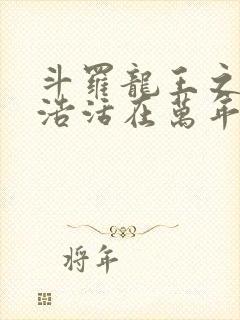 斗羅龍王之
浩活在萬年
将年